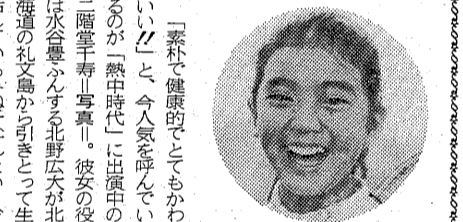 「素朴で健康的でとてもかわ
いい!!」と、今人気を呼んでい
るのが「熱中時代」に出演中の
二階堂千寿＝写真＝。彼女の役
は水谷豊ふんする北野広大が北
海道の礼文島から引きとって生